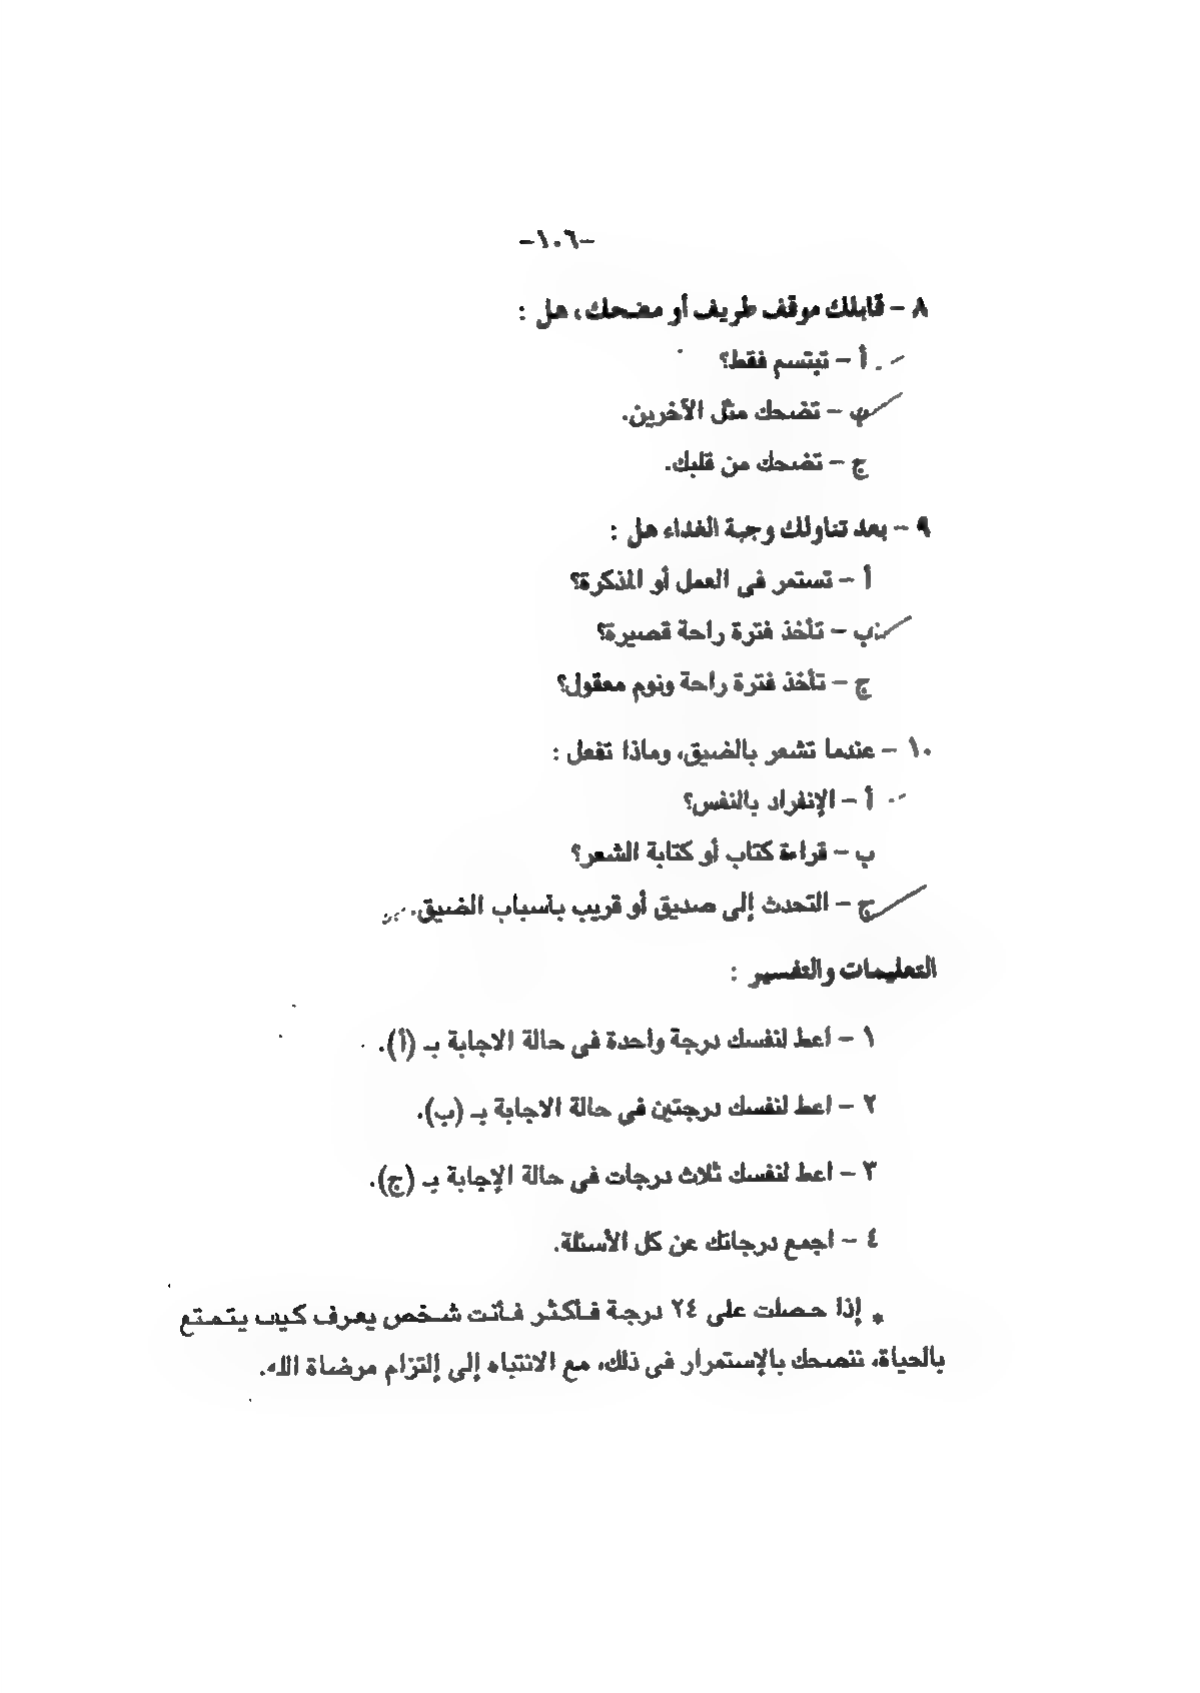 -١٠٦-
٨ - قابلك موقف طريف أو مضحك، هل :
أ - تبتسم فقط؟
ب - تضحك مثل الآخرين.
ج - تضحك من قلبك.
٩ - بعد تناولك وجبة الغداء هل :
أ - تستمر فى العمل أو المذكرة؟
ب - تأخذ فترة راحة قصيرة؟
ج - تأخذ فترة راحة ونوم معقول؟
١٠ - عندما تشعر بالضيق، وماذا تفعل :
أ - الإنفراد بالنفس؟
ب - قراءة كتاب أو كتابة الشعر؟
ج - التحدث إلى صديق أو قريب بأسباب الضيق.
التعليمات والتفسير :
١ - اعط لنفسك درجة واحدة فى حالة الاجابة بـ (أ).
٢ - اعط لنفسك درجتين في حالة الاجابة بـ (ب).
٣ - اعط لنفسك ثلاث درجات فى حالة الإجابة بـ (ج).
٤ - اجمع درجاتك عن كل الأسئلة.
* إذا حصلت على ٢٤ درجة فأكثر فأنت شخص يعرف كيف يتمتع
بالحياة، ننصحك بالإستمرار فى ذلك، مع الانتباه إلى إلتزام مرضاة الله.